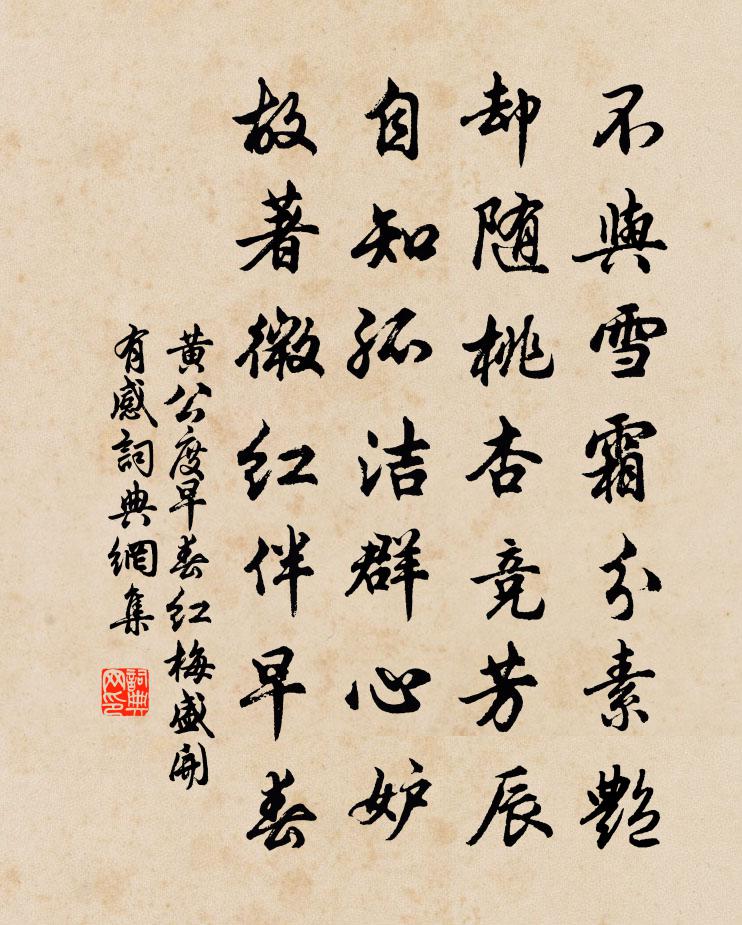 不與雪霜分素艷
却随桃杏竞芳辰
自知孤洁群心妒
故著微红伴早春
黄公度早春红梅盛開
有感詞典網集
詞典网印